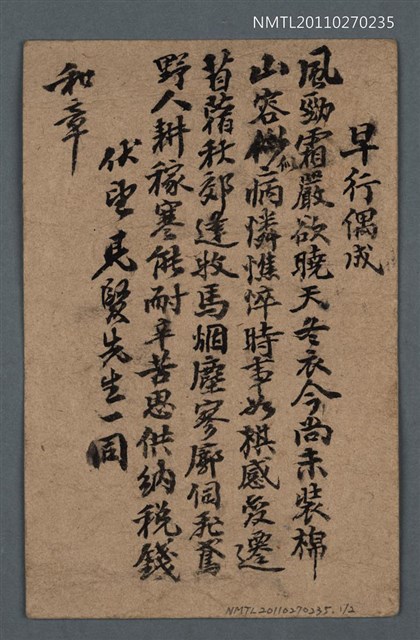 NMTL20110270235
早行偶成
風勁霜嚴欲曉天冬衣今尚未裝棉
山容似病憐憔悴時事如棋感变遷
苜蓿秋郊逢牧馬烟塵寥廓伺飛鳶
野人耕稼寒能耐辛苦思供納稅錢
伏望見賢先生一同
和章
NMTL20110270235. 1/2